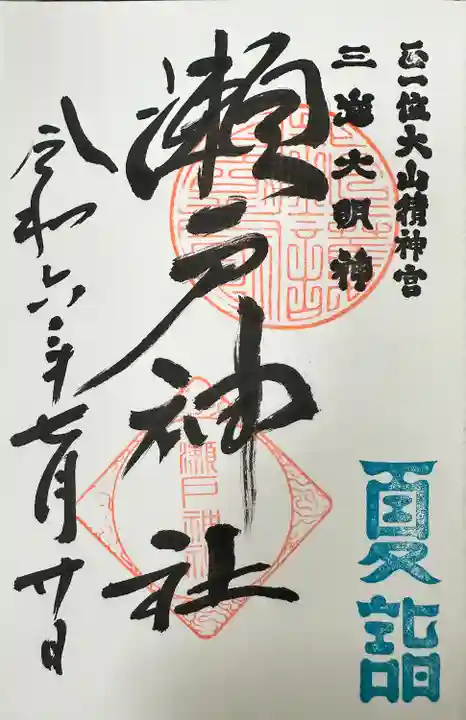 正一位大山積神宮
三嶋大明神
夏詣
瀬戸神社
瀬戸神社
令和六年七月廿日